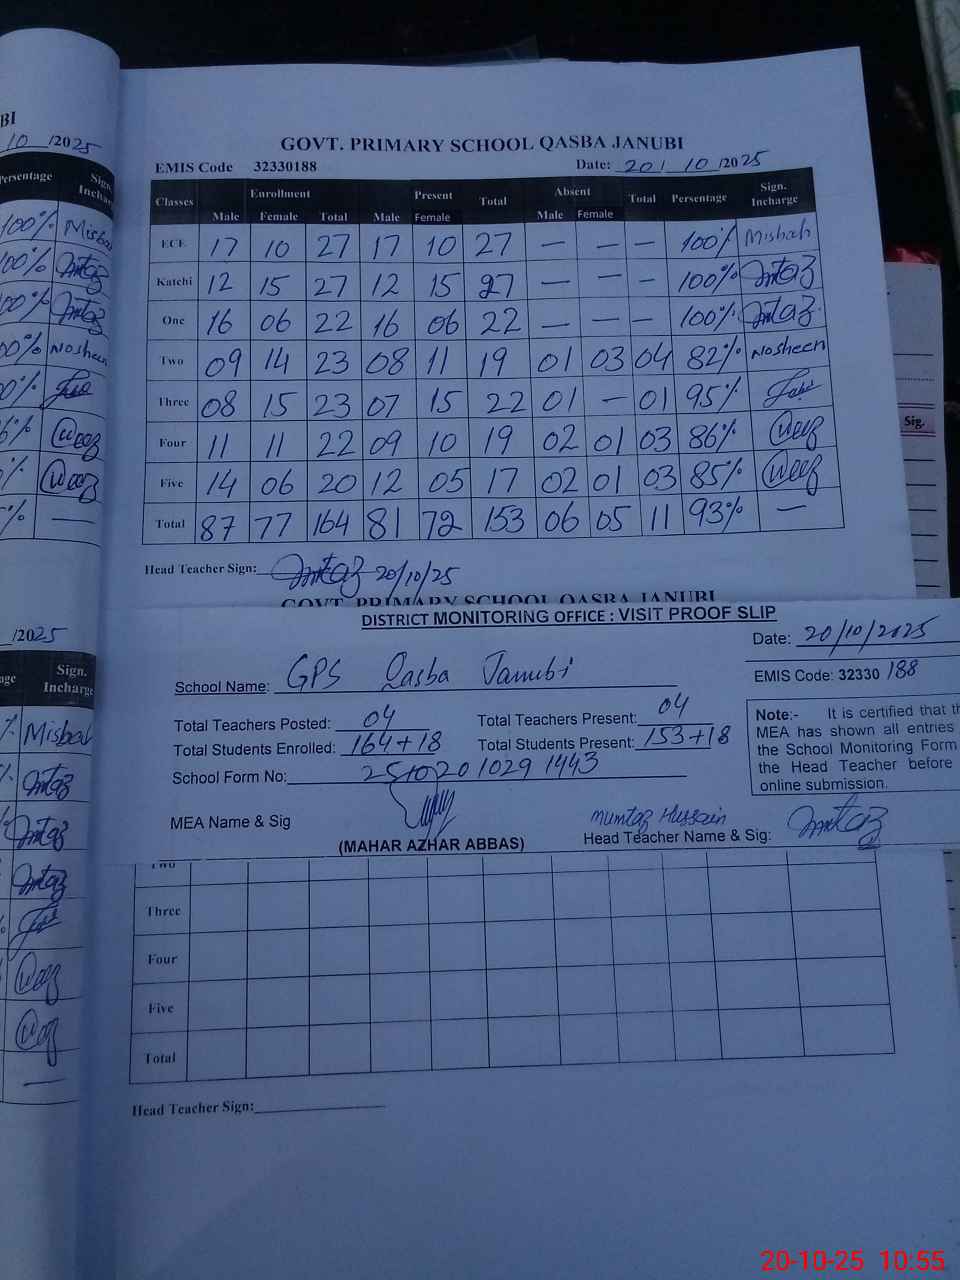 BI
10/2025
GOVT. PRIMARY SCHOOL QASBA JANUBI
EMIS Code 32330188 Date: 20/10/2025
Classes Enrollment Present Total Absent Total Percentage Sign. Incharge
Male Female Total Male Female Male Female
ECE 17 10 27 17 10 27 — — — 100% Misbah
Katchi 12 15 27 12 15 27 — — — 100% Mumtaz
One 16 06 22 16 06 22 — — — 100% Mumtaz
Two 09 14 23 08 11 19 01 03 04 82% Nosheen
Three 08 15 23 07 15 22 01 — 01 95%
Four 11 11 22 09 10 19 02 01 03 86%
Five 14 06 20 12 05 17 02 01 03 85%
Total 87 77 164 81 72 153 06 05 11 93% —
Head Teacher Sign: Mumtaz 20/10/25
GOVT. PRIMARY SCHOOL QASBA JANUBI
DISTRICT MONITORING OFFICE : VISIT PROOF SLIP
Date: 20/10/2025
School Name: GPS Qasba Janubi
EMIS Code: 32330 188
Total Teachers Posted: 04 Total Teachers Present: 04
Total Students Enrolled: 164+18 Total Students Present: 153+18
School Form No: 25102010291443
Note:- It is certified that
MEA has shown all entries
the School Monitoring Form
the Head Teacher before
online submission.
MEA Name & Sig
(MAHAR AZHAR ABBAS)
Mumtaz Hussain
Head Teacher Name & Sig: Mumtaz
Two
Three
Four
Five
Total
Head Teacher Sign:
Percentage Sign. Incharge
100% Misbah
100% Mumtaz
100% Mumtaz
Nosheen
/2025
Sign. Incharge
Misbah
Mumtaz
Mumtaz
Mumtaz
Sig.
20-10-25 10:55